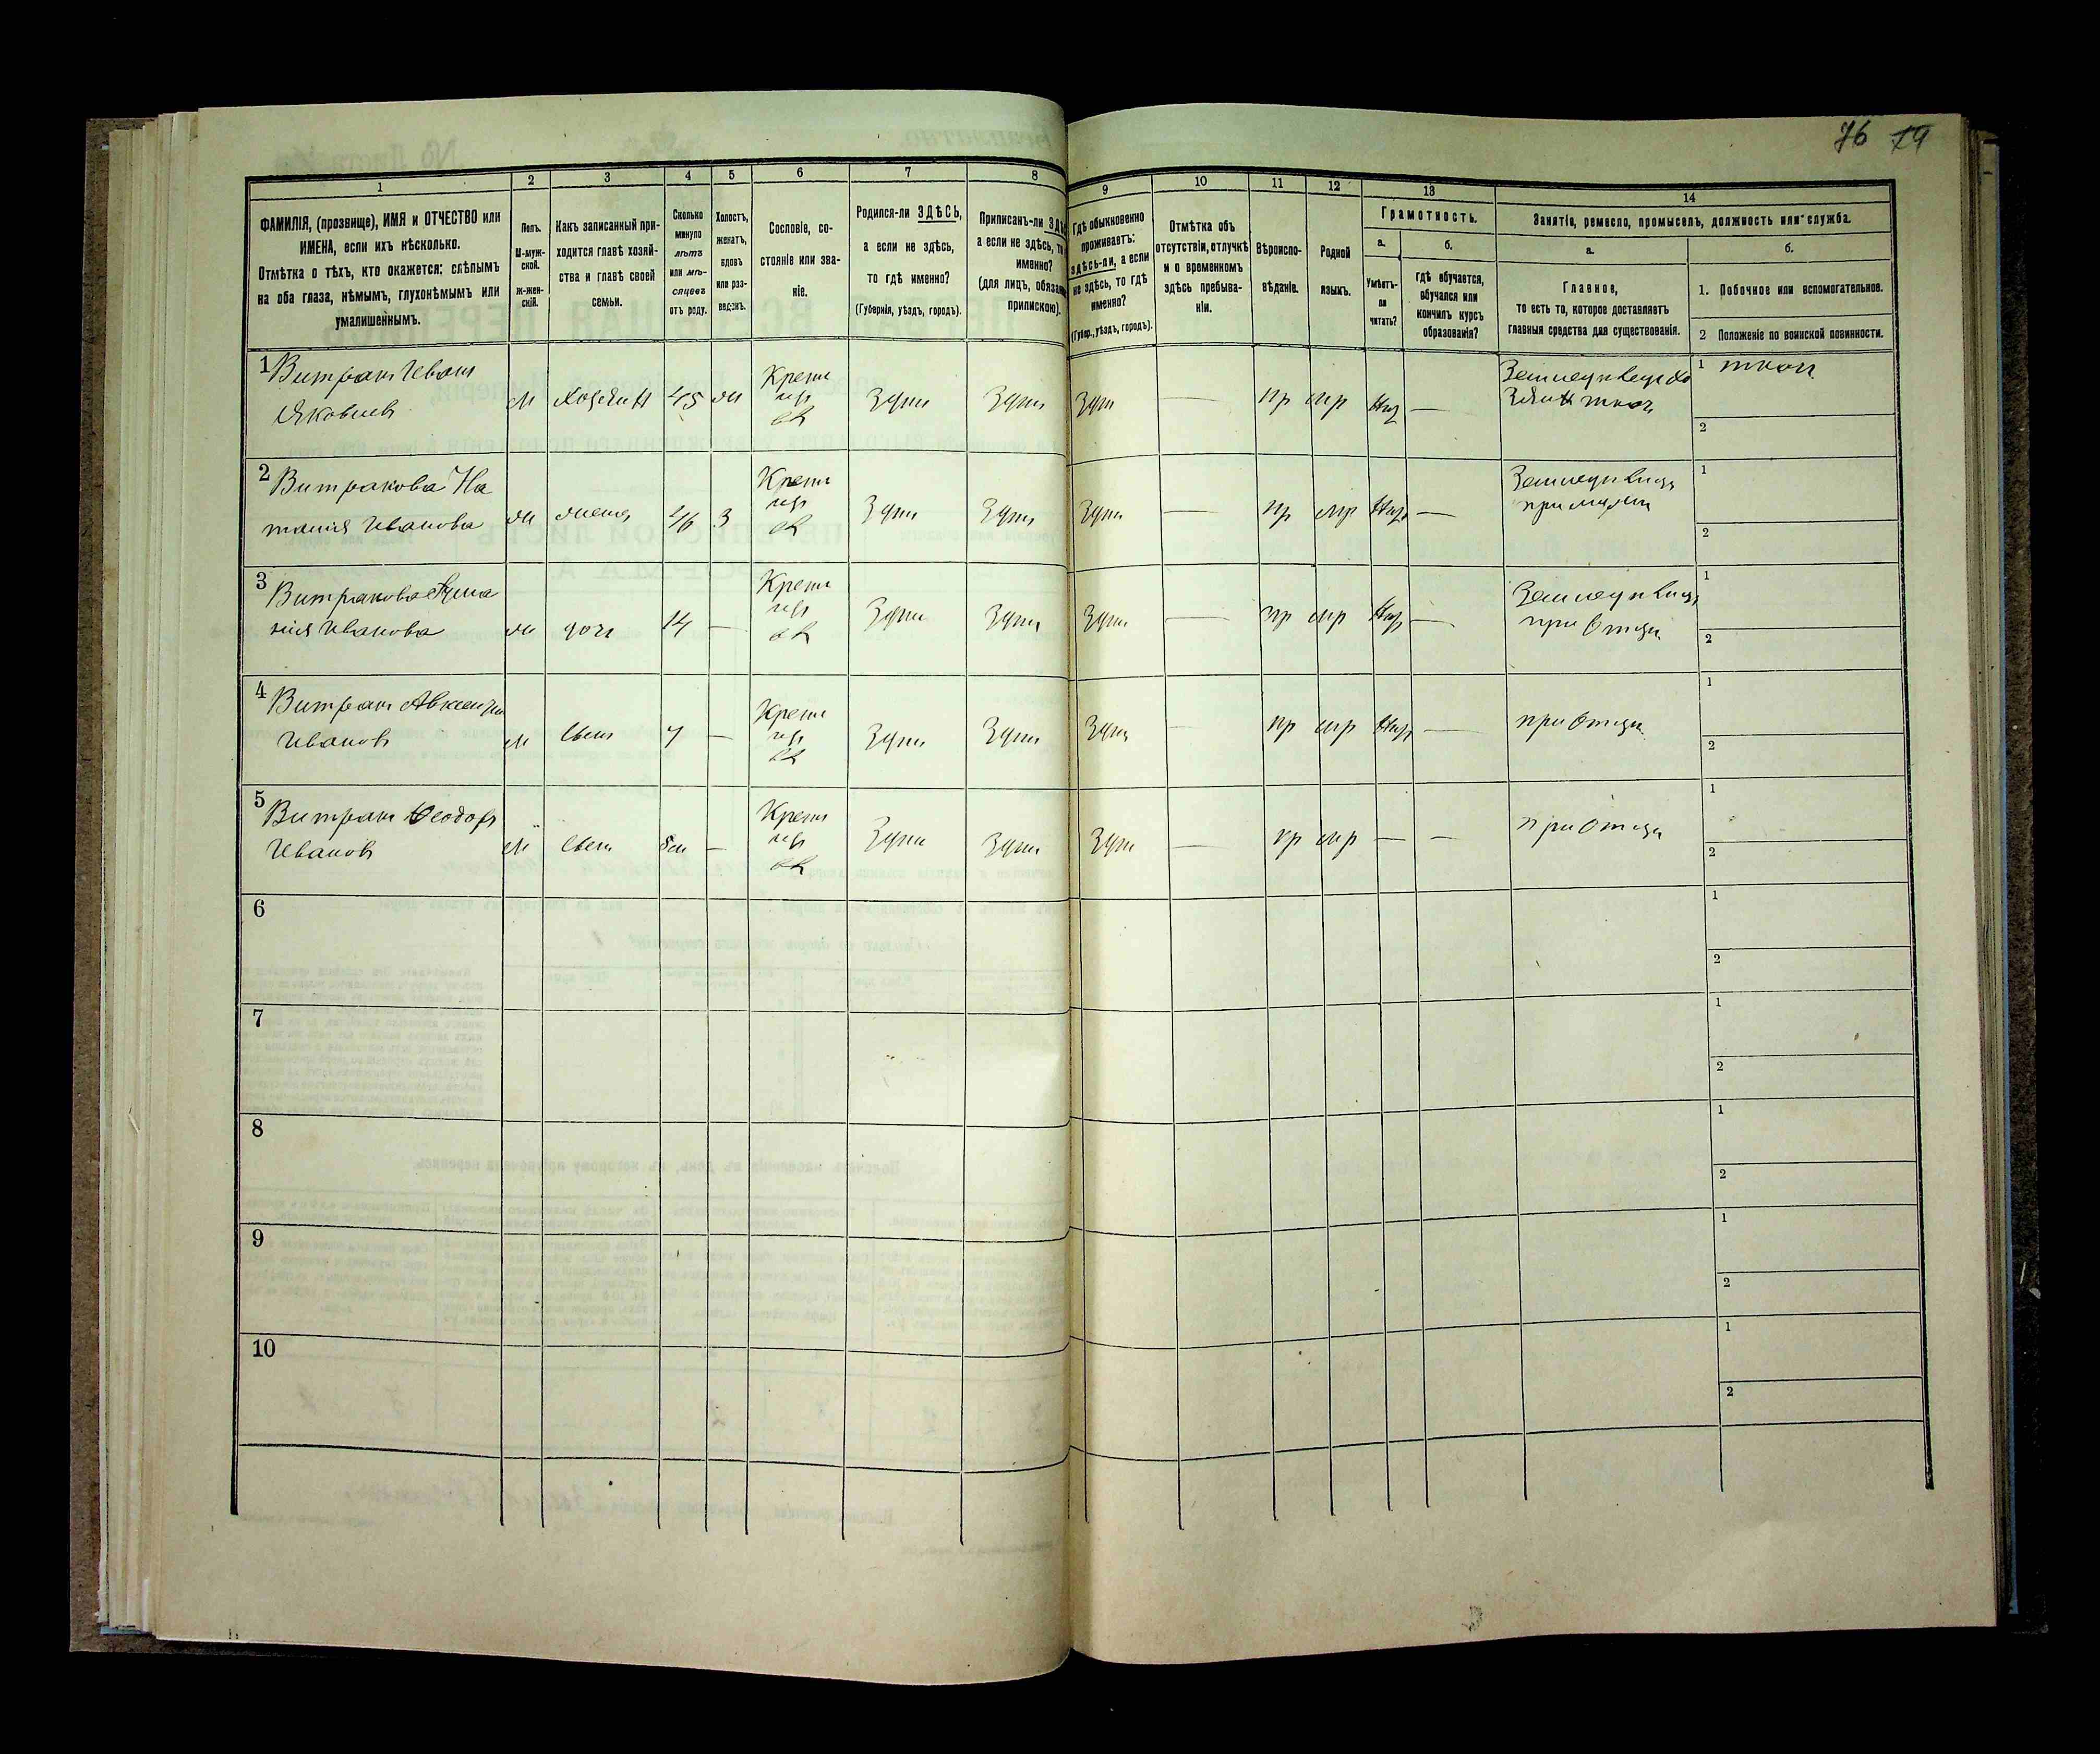 76 79
1 2 3 4 5 6 7 8 9 10 11 12 13 14
ФАМИЛІЯ, (прозвище), ИМЯ и ОТЧЕСТВО или
ИМЕНА, если ихъ нѣсколько.
Отмѣтка о тѣхъ, кто окажется: слѣпымъ
на оба глаза, нѣмымъ, глухонѣмымъ или
умалишеннымъ.
Полъ.
М-муж-
ской.
Ж-жен-
скій.
Какъ записанный при-
ходится главѣ хозяй-
ства и главѣ своей
семьи.
Сколько
минуло
лѣтъ
или мѣ-
сяцевъ
отъ роду.
Холостъ,
женатъ,
вдовъ
или раз-
веденъ.
Сословіе, со-
стояніе или зва-
ніе.
Родился-ли ЗДѢСЬ,
а если не здѣсь,
то гдѣ именно?
(Губернія, уѣздъ, городъ).
Приписанъ-ли
а если не здѣсь,
именно?
(для лицъ,
припискою).
Гдѣ обыкновенно
проживаетъ:
здѣсь-ли, а если
не здѣсь, то гдѣ
именно?
(Губер., уѣздъ, городъ).
Отмѣтка объ
отсутствіи, отлучкѣ
и о временномъ
здѣсь пребыва-
ніи.
Вѣроиспо-
вѣданіе.
Родной
языкъ.
Грамотность.
а. б.
Умѣетъ-
ли
читать?
гдѣ обучается,
обучался или
кончилъ курсъ
образованія?
Занятіе, ремесло, промыселъ, должность или служба.
а. б.
Главное,
то есть то, которое доставляетъ
главныя средства для существованія.
1. Побочное или вспомогательное.
2 Положеніе по воинской повинности.
1 Витракъ Иванъ
Яковлевъ
м Хозяинъ 45 ж
Крест
Здѣсь Здѣсь Здѣсь — пр —
1 ткач
2
2 Витракова На
талия Иванова
ж жена 46 З
Крест
Здѣсь Здѣсь Здѣсь — пр —
при мужи
1
2
3 Витракова
Иванова
ж доч 14 —
Крест
Здѣсь Здѣсь Здѣсь — пр —
при Отци
1
2
4 Витракъ
Ивановъ
м Сынъ 7 —
Крест
Здѣсь Здѣсь Здѣсь — пр —
при Отци
1
2
5 Витракъ Феодоръ
Ивановъ
м Сынъ 8м —
Крест
Здѣсь Здѣсь Здѣсь — пр — —
при Отци
1
2
6
1
2
7
1
2
8
1
2
9
1
2
10
1
2